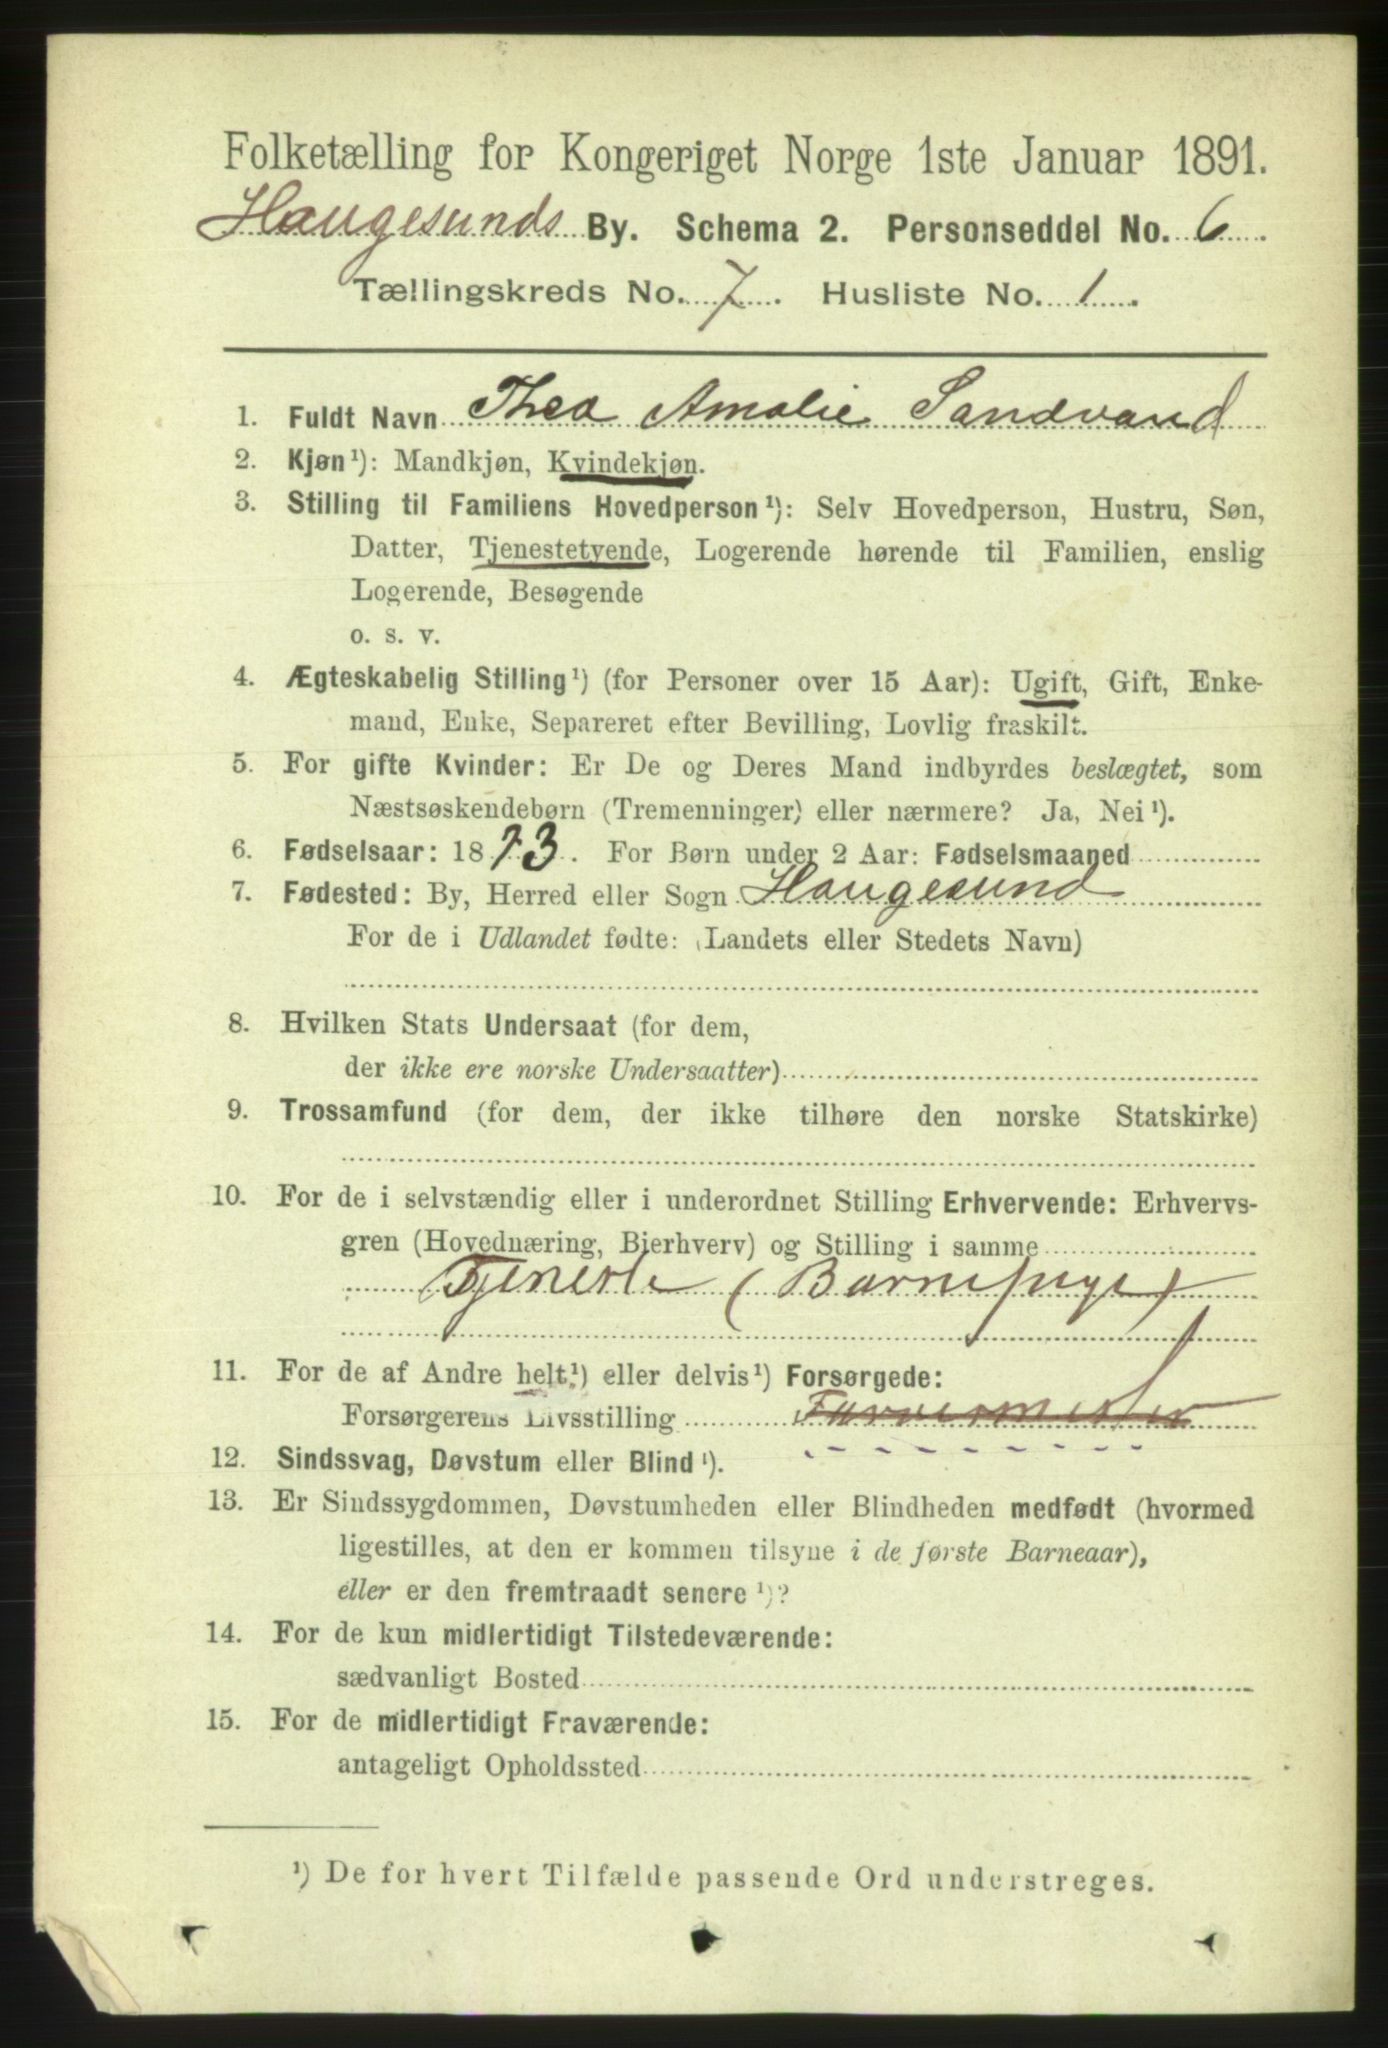 Folketælling for Kongeriget Norge 1ste Januar 1891.
Haugesunds By. Schema 2. Personseddel No. 6
Tællingskreds No. 7. Husliste No. 1.
1. Fuldt Navn Thea Amalie Sandvand
2. Kjøn¹): Mandkjøn, Kvindekjøn.
3. Stilling til Familiens Hovedperson¹): Selv Hovedperson, Hustru, Søn,
Datter, Tjenestetyende, Logerende hørende til Familien, enslig
Logerende, Besøgende
o. s. v.
4. Ægteskabelig Stilling¹) (for Personer over 15 Aar): Ugift, Gift, Enke-
mand, Enke, Separeret efter Bevilling, Lovlig fraskilt.
5. For gifte Kvinder: Er De og Deres Mand indbyrdes beslægtet, som
Næstsøskendebørn (Tremenninger) eller nærmere? Ja, Nei¹).
6. Fødselsaar: 1873. For Børn under 2 Aar: Fødselsmaaned
7. Fødested: By, Herred eller Sogn Haugesund
For de i Udlandet fødte: (Landets eller Stedets Navn)
8. Hvilken Stats Undersaat (for dem,
der ikke ere norske Undersaatter)
9. Trossamfund (for dem, der ikke tilhøre den norske Statskirke)
10. For de i selvstændig eller i underordnet Stilling Erhvervende: Erhvervs-
gren (Hovednæring, Bierhverv) og Stilling i samme
Tjeneste (Barnepige)
11. For de af Andre helt¹) eller delvis¹) Forsørgede:
Forsørgerens Livsstilling Farvermester
12. Sindssvag, Døvstum eller Blind¹).
13. Er Sindssygdommen, Døvstumheden eller Blindheden medfødt (hvormed
ligestilles, at den er kommen tilsyne i de første Barneaar),
eller er den fremtraadt senere¹)?
14. For de kun midlertidigt Tilstedeværende:
sædvanligt Bosted
15. For de midlertidigt Fraværende:
antageligt Opholdssted
¹) De for hvert Tilfælde passende Ord understreges.